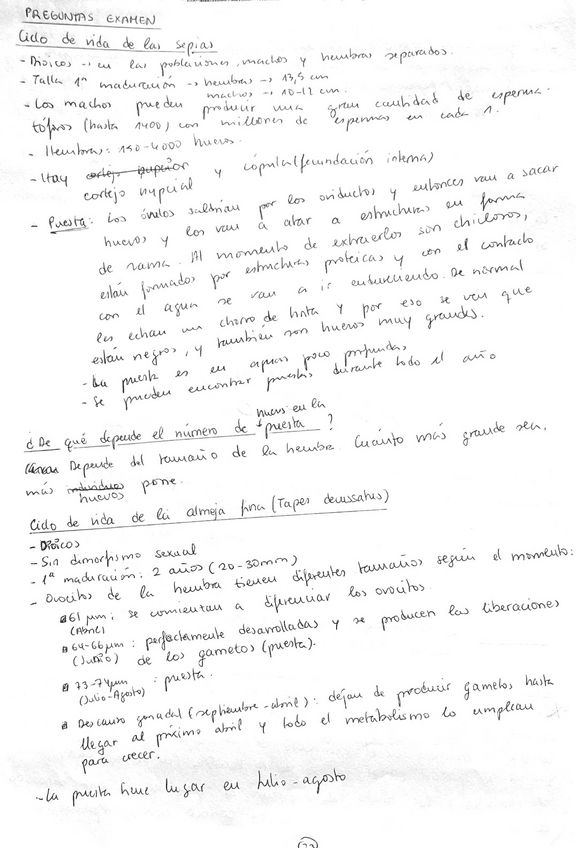 PREGUNTAS EXAMEN
Ciclo de vida de las sepias
- Dioicos -> en las poblaciones, machos y hembras separados.
- Talla 1ª maduración -> hembras -> 13,5 cm
machos -> 10-12 cm.
- Los machos pueden producir una gran cantidad de esperma-
tóforos (hasta 1400) con millones de espermas en cada 1.
- Hembras: 150-4000 huevos.
- Hay cortejo nupcial y cópula (fecundación interna)
cortejo nupcial
- Puesta: Los óvulos saldrían por los oviductos y entonces van a sacar
huevos y los van a atar a estructuras en forma
de rama. Al momento de extraerlos son chiclosos,
están formados por estructuras proteicas y con el contacto
con el agua se van a ir endureciendo. De normal
les echan un chorro de tinta y por eso se ven que
están negros, y también son huevos muy grandes.
- La puesta es en aguas poco profundas
- Se pueden encontrar puestas durante todo el año
¿De qué depende el número de huevos en la puesta?
Depende del tamaño de la hembra. Cuánto más grande sea,
más individuos pone.
huevos
Ciclo de vida de la almeja fina (Tapes decussatus)
- Dioicos
- Sin dimorfismo sexual
- 1ª maduración: 2 años (20-30mm)
- Ovocitos de la hembra tienen diferentes tamaños según el momento:
61 µm: se comienzan a diferenciar los ovocitos.
(Abril)
64-66µm: perfectamente desarrolladas y se producen las liberaciones
(Junio) de los gametos (puesta).
73-74µm: puesta.
(Julio-Agosto)
Descanso gonadal (septiembre-abril): dejan de producir gametos, hasta
llegar al próximo abril y todo el metabolismo lo emplean
para crecer.
- La puesta tiene lugar en Julio-agosto